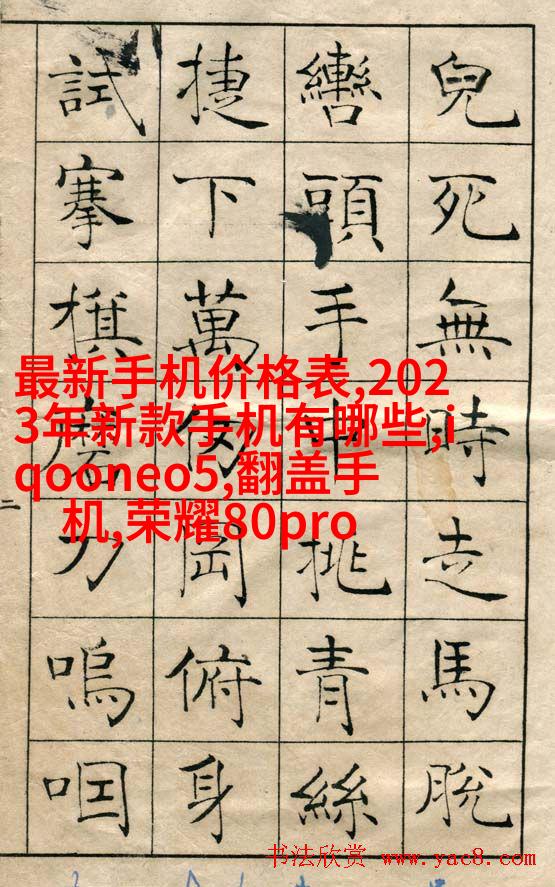 兒死無時走馬脫
轡頭手中挑青絲
捷下萬仞岡俯身
試搴旗磨刀嗚咽
二
最新手机价格表,202
3年新款手机有哪些,i
qooneo5,翻盖手
机,荣耀80pro
书法欣赏 www.yac8.com